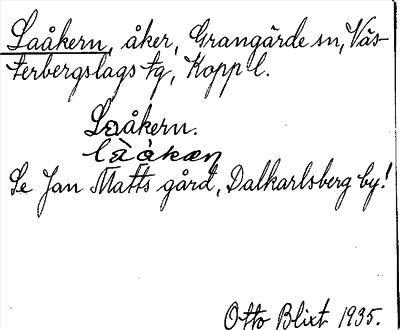 Laåkern, åker, Grangärde sn, Väs-
terbergslags tg, Kopp l.
Laåkern.
làåkæn
Se Jan Matts gård, Dalkarlsberg by!
Otto Blixt 1935.